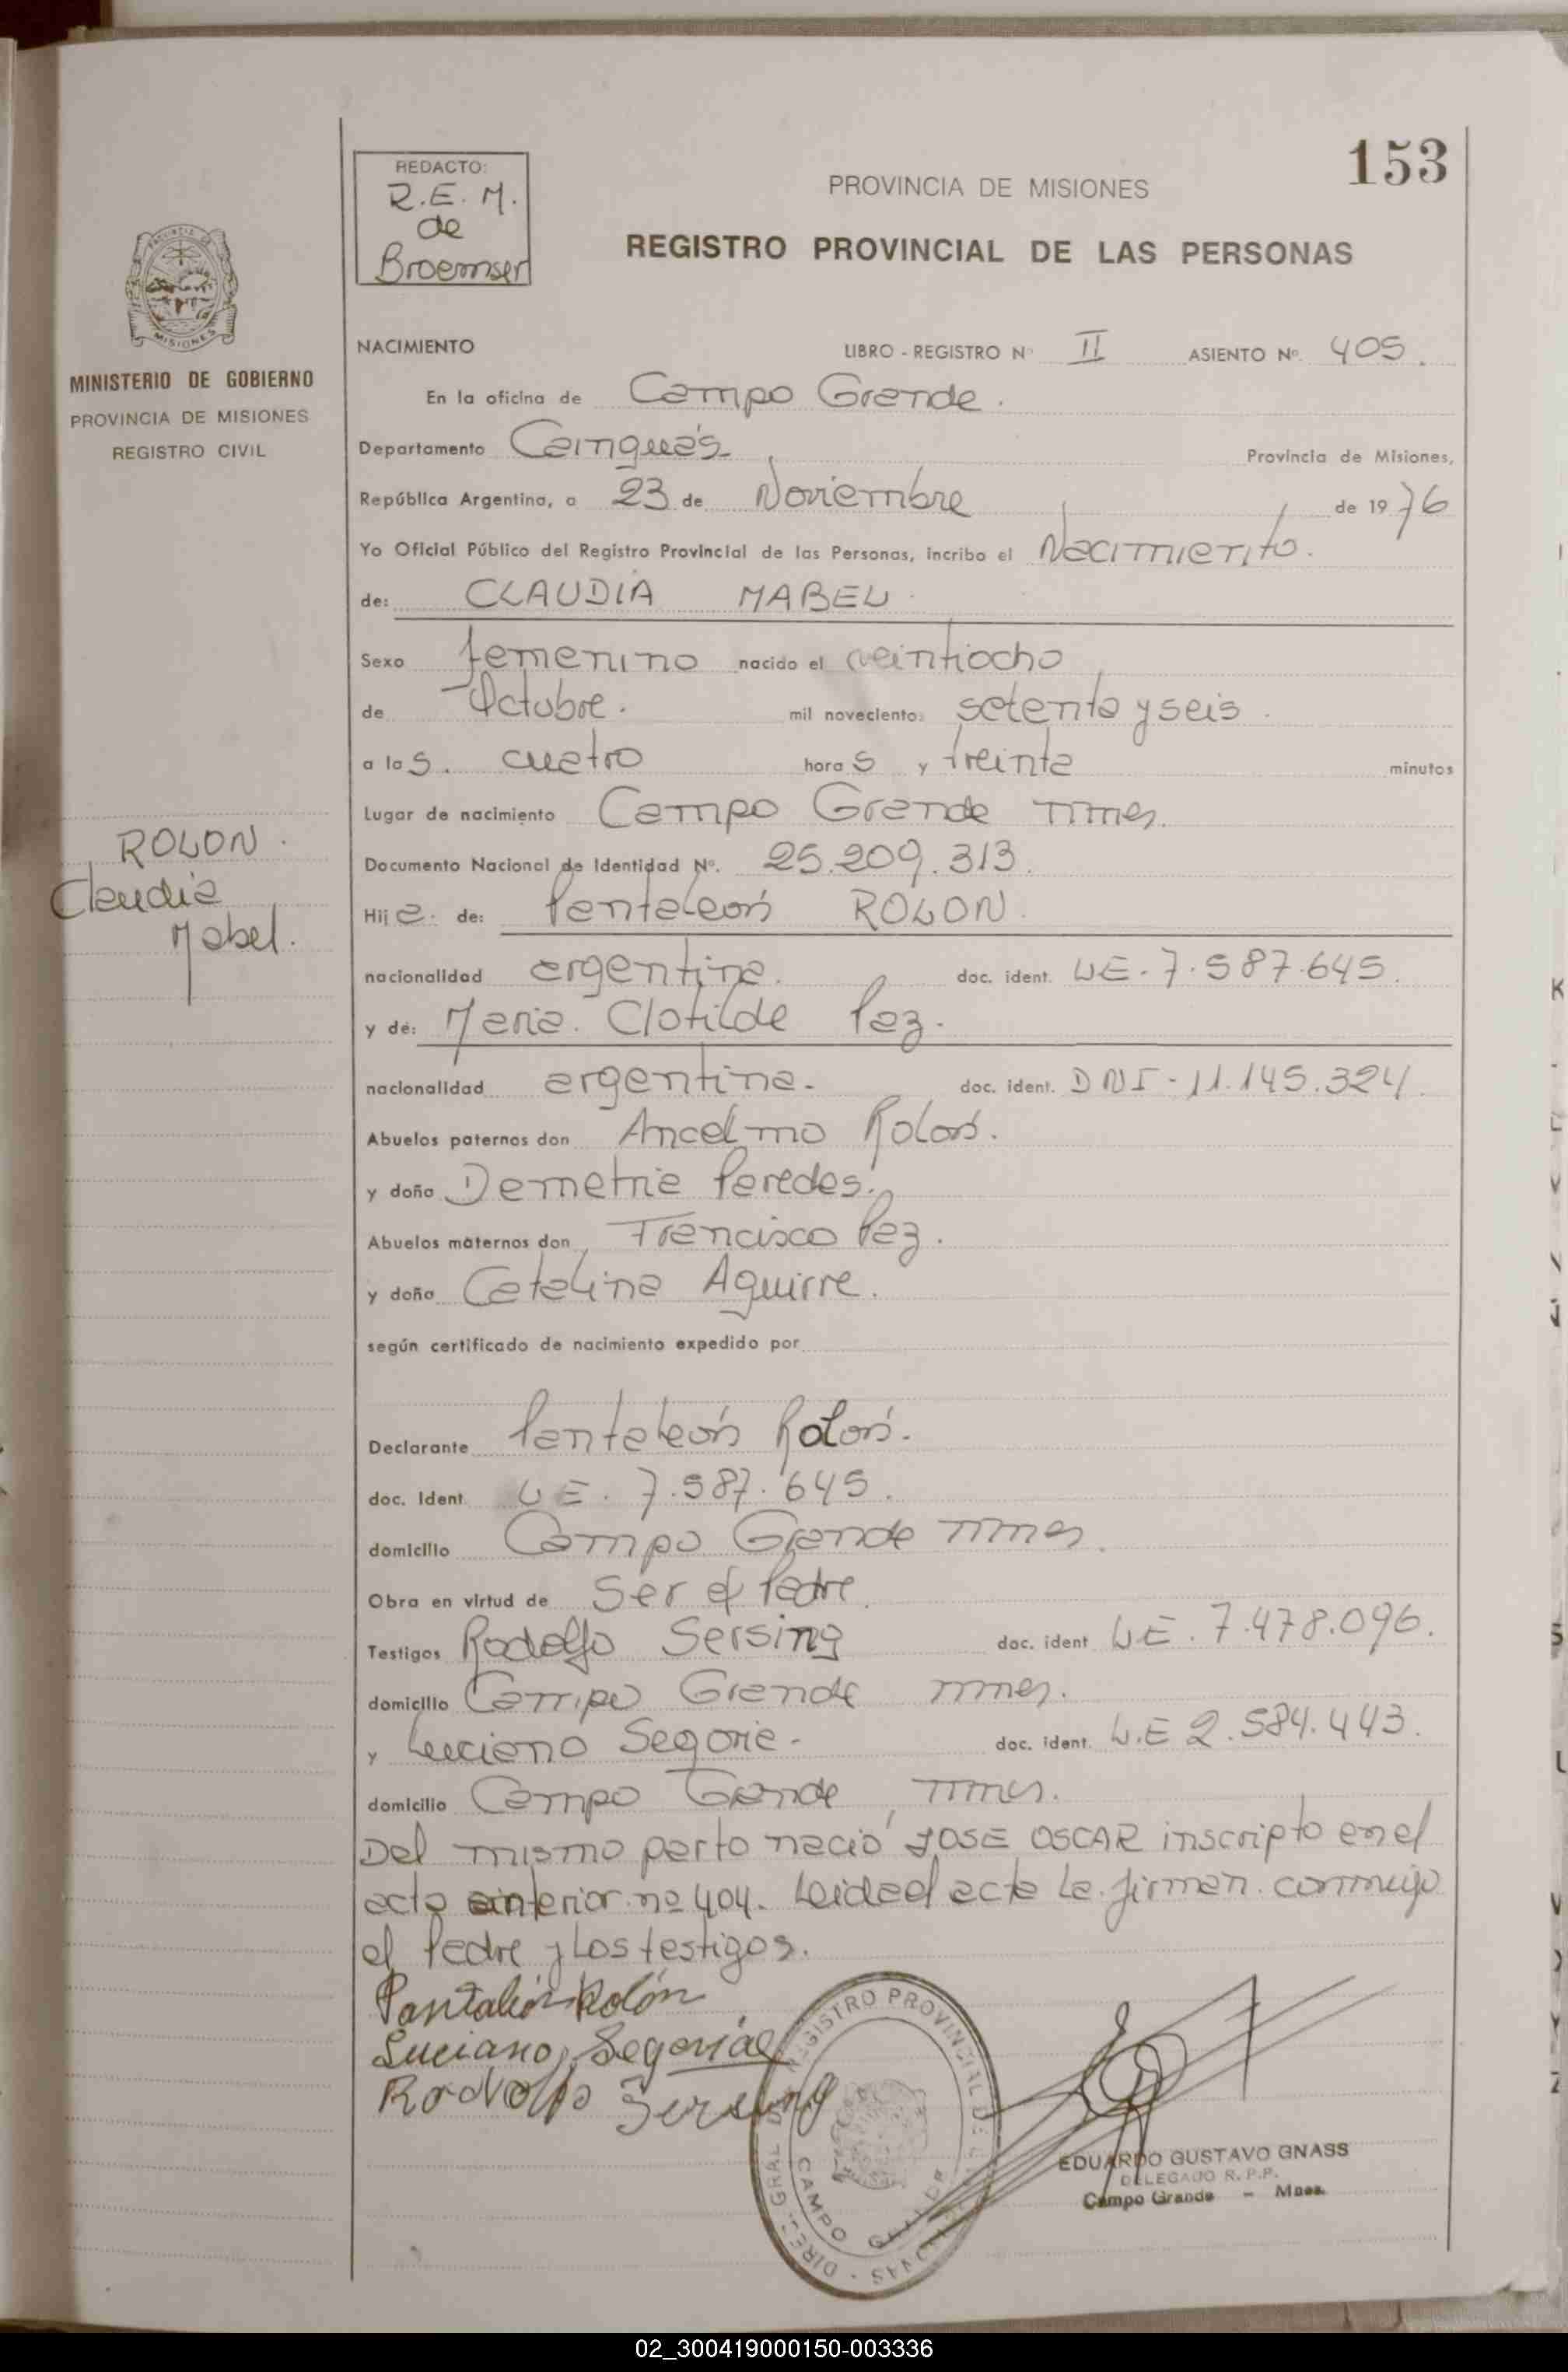 153
REDACTO:
R.E.M.
de
Broemser
PROVINCIA DE MISIONES
REGISTRO PROVINCIAL DE LAS PERSONAS
PROVINCIA DE
MISIONES
MINISTERIO DE GOBIERNO
PROVINCIA DE MISIONES
REGISTRO CIVIL
NACIMIENTO LIBRO - REGISTRO Nº II ASIENTO Nº. 405.
En la oficina de Campo Grande.
Departamento Cainguás Provincia de Misiones,
República Argentina, a 23 de Noviembre de 1976
Yo Oficial Público del Registro Provincial de las Personas, incribo el Nacimiento.
de: CLAUDIA MABEL.
Sexo femenino nacido el veintiocho
de Octubre. mil novecientos setenta y seis.
a las. cuatro horas y treinta minutos
Lugar de nacimiento Campo Grande Mnes.
Documento Nacional de Identidad Nº. 25.209.313.
ROLON.
Claudia
Mabel.
Hija. de: Panteleón ROLON.
nacionalidad argentina. doc. ident. LE. 7.587.645.
y de: Maria. Clotilde Paz.
nacionalidad argentina. doc. ident. DNI - 11.145.324.
Abuelos paternos don Ancelmo Rolón.
y doña Demetria Paredes.
Abuelos maternos don Francisco Paz.
y doña Catalina Aguirre.
según certificado de nacimiento expedido por
Declarante Panteleón Rolón.
doc. Ident. LE. 7.587.645.
domicilio Campo Grande Mnes.
Obra en virtud de Ser el Padre.
Testigos Rodolfo Sersing doc. ident LE. 7.478.096.
domicilio Campo Grande mnes.
y Luciano Segovia. doc. ident. L.E 2.584.443.
domicilio Campo Grande, Mnes.
Del mismo parto nació JOSE OSCAR inscripto en el
acta anterior nº 404. Leida el acta La firman conmigo
el Padre y Los testigos.
Pantaleón Rolón
Luciano, Segovia
Rodolfo Sersing
DIREC. GRAL DEL REGISTRO PROVINCIAL DE LAS PERSONAS
CAMPO GRANDE
EDUARDO GUSTAVO GNASS
DELEGADO R.P.P.
Campo Grande - Mnes.
02_300419000150-003336